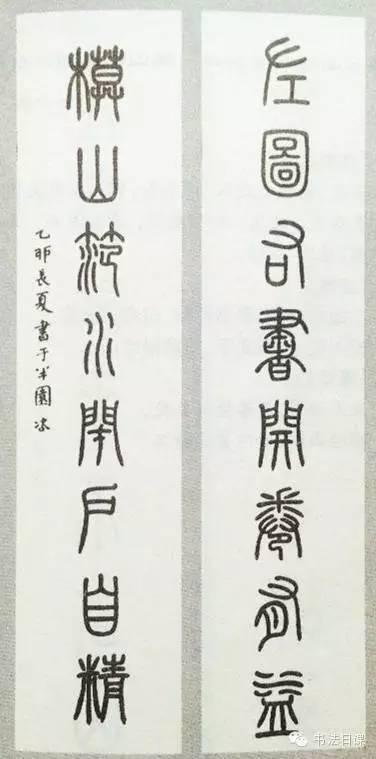 左圖右書開卷有益
模山笵水閉戶自精
乙卯長夏書于半園
书法日课